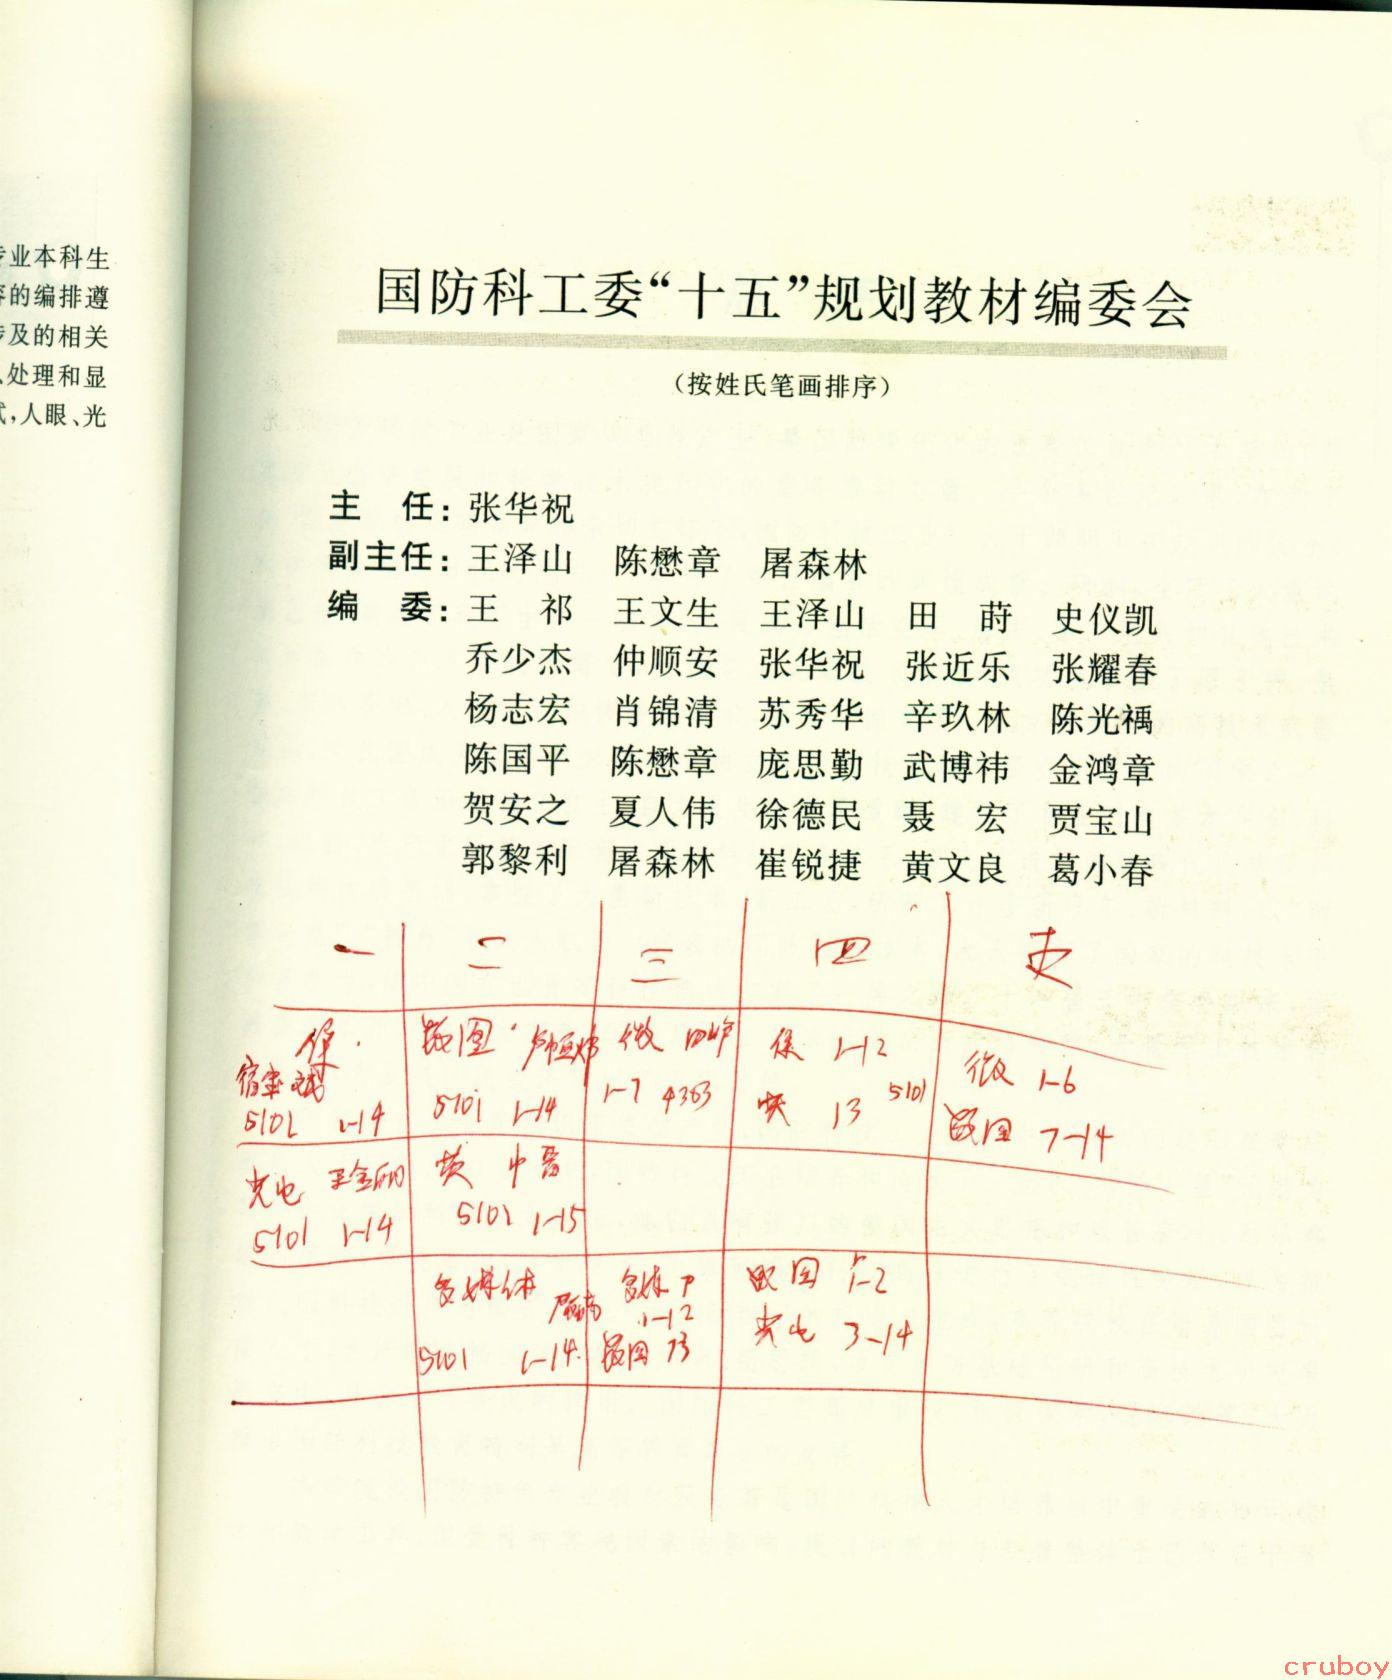 专业本科生
容的编排遵
涉及的相关
、处理和显
式,人眼、光
国防科工委“十五”规划教材编委会
(按姓氏笔画排序)
主　任：张华祝
副主任：王泽山　陈懋章　屠森林
编　委：王　祁　王文生　王泽山　田　莳　史仪凯
乔少杰　仲顺安　张华祝　张近乐　张耀春
杨志宏　肖锦清　苏秀华　辛玖林　陈光禑
陈国平　陈懋章　庞思勤　武博祎　金鸿章
贺安之　夏人伟　徐德民　聂　宏　贾宝山
郭黎利　屠森林　崔锐捷　黄文良　葛小春
一　二　三　四
数图　微　1-12
5101　1-14　1-7　4363　13　5101　微　1-6
1-14　数图　7-14
光电　英
5101　1-14　1-15
多媒体　数图　1-2
1-12　光电　3-14
5101　1-14　数图　13
cruboy